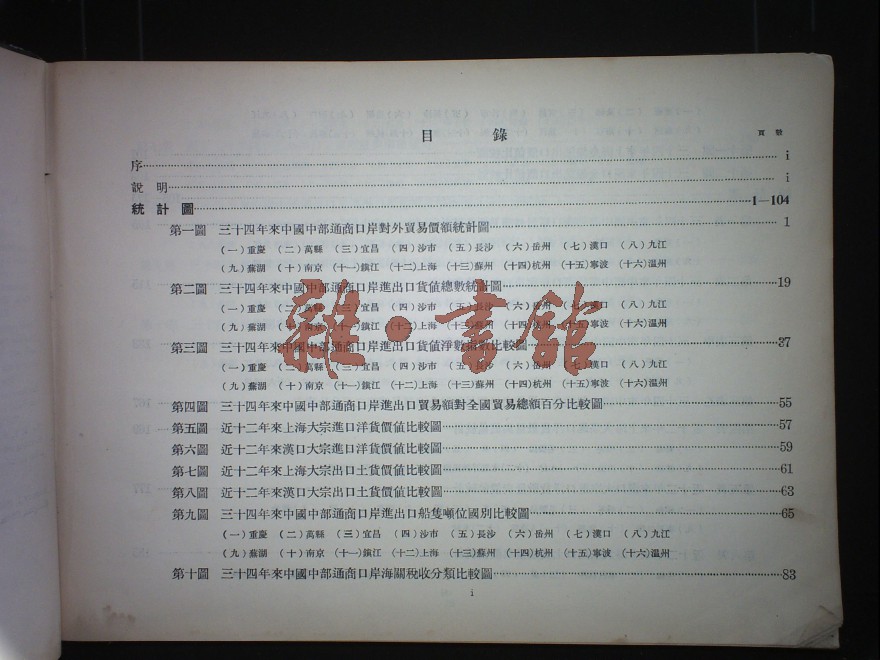 目 錄
頁 數
序 i
說 明 i
統 計 圖 1—104
第一圖 三十四年來中國中部通商口岸對外貿易價額統計圖 1
(一)重慶 (二)萬縣 (三)宜昌 (四)沙市 (五)長沙 (六)岳州 (七)漢口 (八)九江
(九)蕪湖 (十)南京 (十一)鎮江 (十二)上海 (十三)蘇州 (十四)杭州 (十五)寧波 (十六)溫州
第二圖 三十四年來中國中部通商口岸進出口貨值總數統計圖 19
(一)重慶 (二)萬縣 (三)宜昌 (四)沙市 (五)長沙 (六)岳州 (七)漢口 (八)九江
(九)蕪湖 (十)南京 (十一)鎮江 (十二)上海 (十三)蘇州 (十四)杭州 (十五)寧波 (十六)溫州
雜·書館
第三圖 三十四年來中國中部通商口岸進出口貨值淨數指數比較圖 37
(一)重慶 (二)萬縣 (三)宜昌 (四)沙市 (五)長沙 (六)岳州 (七)漢口 (八)九江
(九)蕪湖 (十)南京 (十一)鎮江 (十二)上海 (十三)蘇州 (十四)杭州 (十五)寧波 (十六)溫州
第四圖 三十四年來中國中部通商口岸進出口貿易額對全國貿易總額百分比較圖 55
第五圖 近十二年來上海大宗進口洋貨價值比較圖 57
第六圖 近十二年來漢口大宗進口洋貨價值比較圖 59
第七圖 近十二年來上海大宗出口土貨價值比較圖 61
第八圖 近十二年來漢口大宗出口土貨價值比較圖 63
第九圖 三十四年來中國中部通商口岸進出口船隻噸位國別比較圖 65
(一)重慶 (二)萬縣 (三)宜昌 (四)沙市 (五)長沙 (六)岳州 (七)漢口 (八)九江
(九)蕪湖 (十)南京 (十一)鎮江 (十二)上海 (十三)蘇州 (十四)杭州 (十五)寧波 (十六)溫州
第十圖 三十四年來中國中部通商口岸海關稅收分類比較圖 83
i